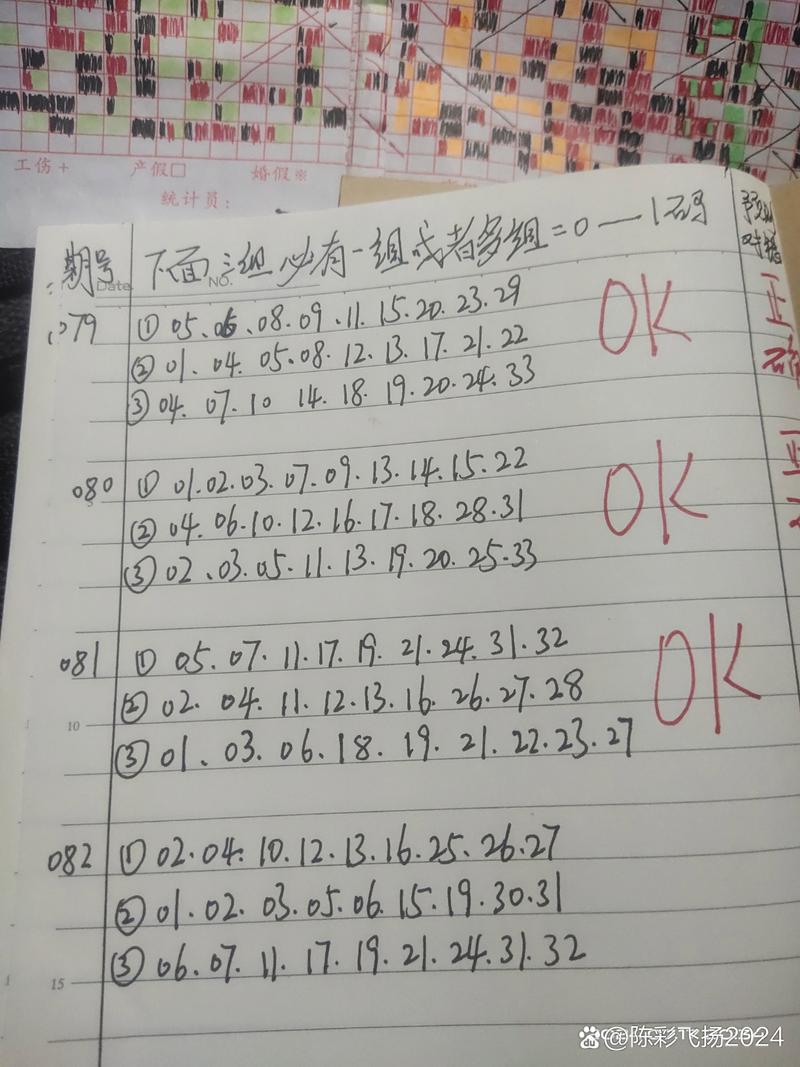 工伤+ 产假□ 婚假※
统计员：
期号 下面三组必有一组或者多组=0—1码
Date. NO.
079 ① 05.06.08.09.11.15.20.23.29 OK
② 01.04.05.08.12.13.17.21.22
③ 04.07.10 14.18.19.20.24.33
080 ① 01.02.03.07.09.13.14.15.22 OK
② 04.06.10.12.16.17.18.28.31
③ 02.03.05.11.13.19.20.25.33
081 ① 05.07.11.17.19.21.24.31.32 OK
10 ② 02.04.11.12.13.16.26.27.28
③ 01.03.06.18.19.21.22.23.27
082 ① 02.04.10.12.13.16.25.26.27
② 01.02.03.05.06.15.19.30.31
15 ③ 06.07.11.17.19.21.24.31.32
@陈彩飞扬2024